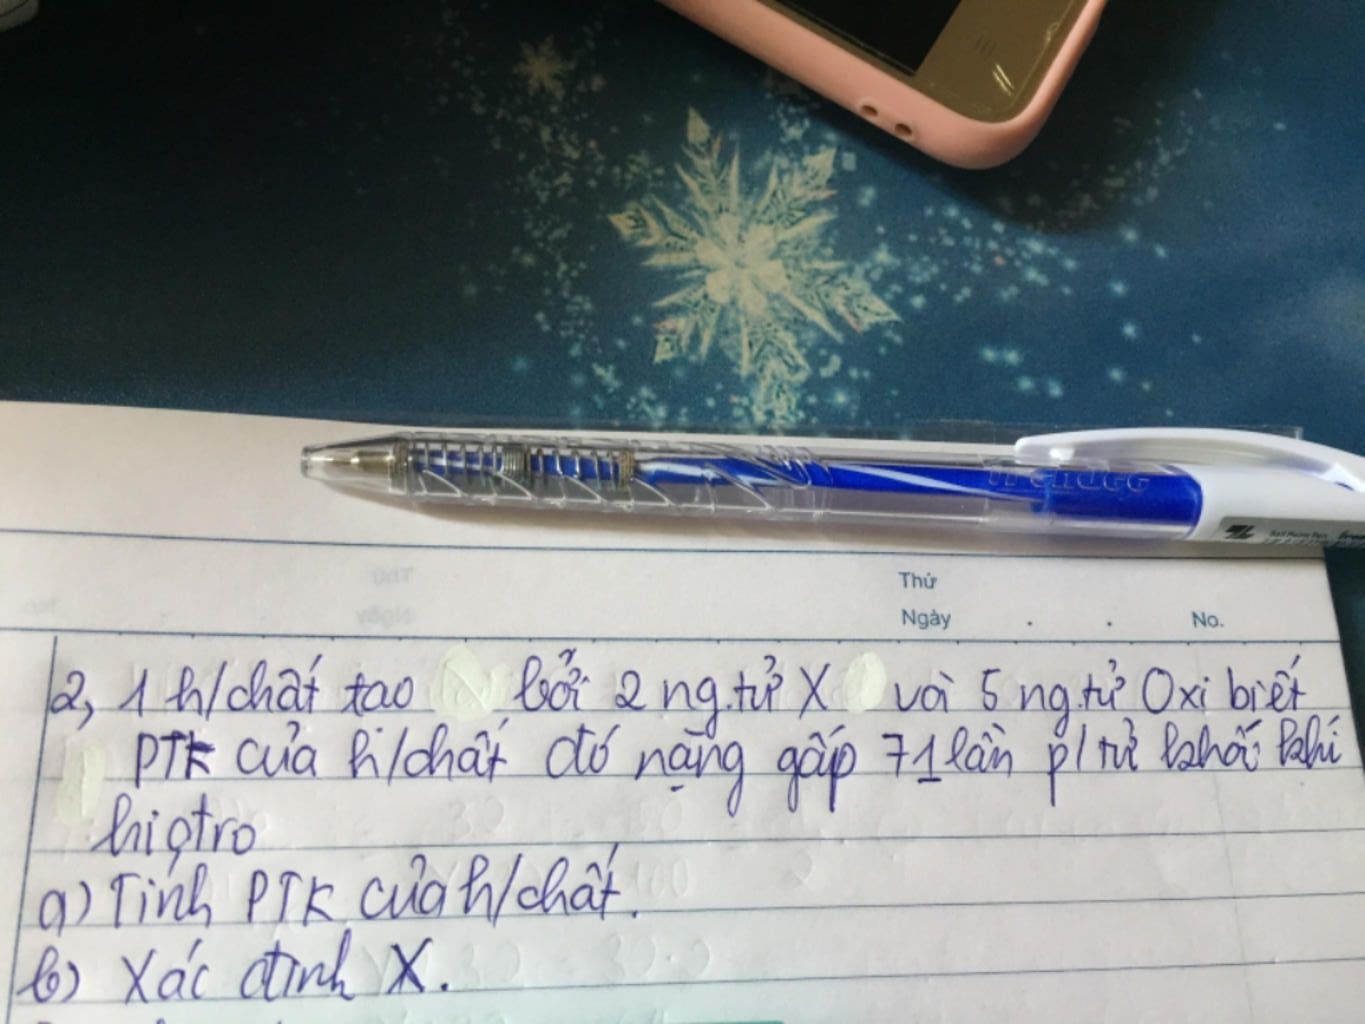 trendee
Thứ
Ngày . . No.
2, 1 h/chất tạo bởi 2 ng.tử X và 5 ng.tử Oxi biết
PTK của h/chất đó nặng gấp 71 lần p/tử khối khí
hiđro
a) Tính PTK của h/chất.
b) Xác định X.